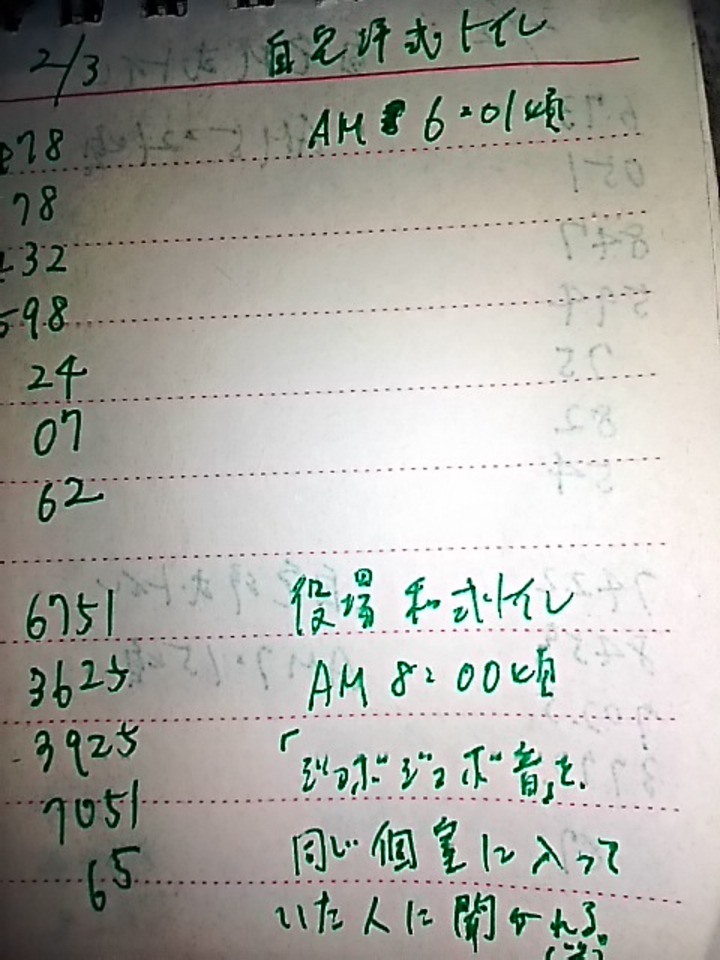 2/3 自宅洋式トイレ
78 AM 6:01頃
78
32
598
24
07
62
6751 役場 和式トイレ
3625 AM 8:00頃
3925 「ジョボジョボ音」を、
7051 同じ個室に入って
65 いた人に聞かれる。
(笑)